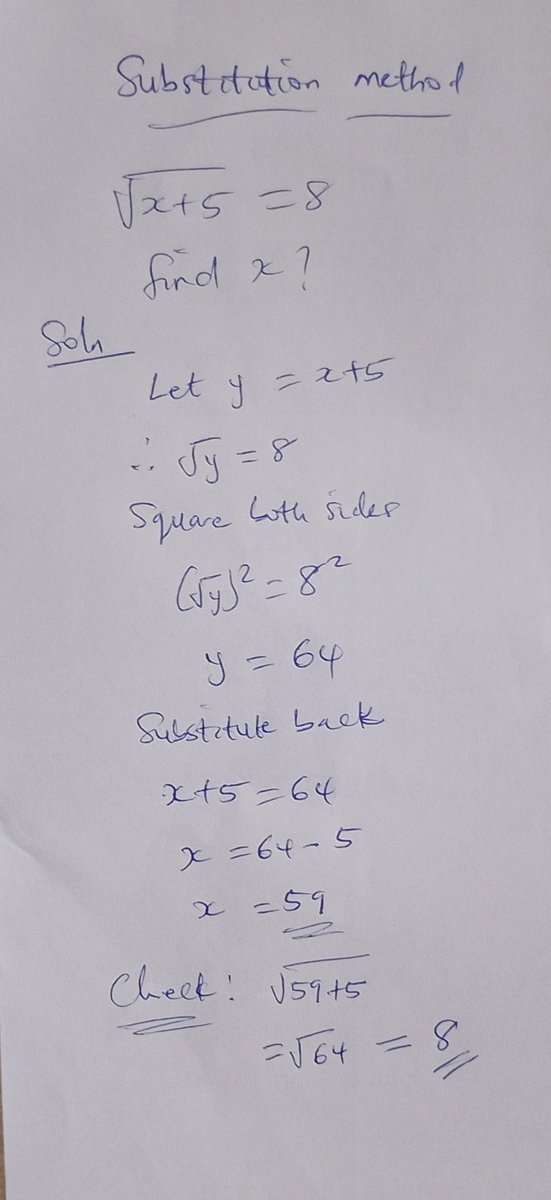 Substitution method
√x+5 = 8
find x?
Soln
Let y = x+5
∴ √y = 8
Square both sides
(√y)² = 8²
y = 64
Substitute back
x+5 = 64
x = 64 - 5
x = 59
Check: √59+5
= √64 = 8